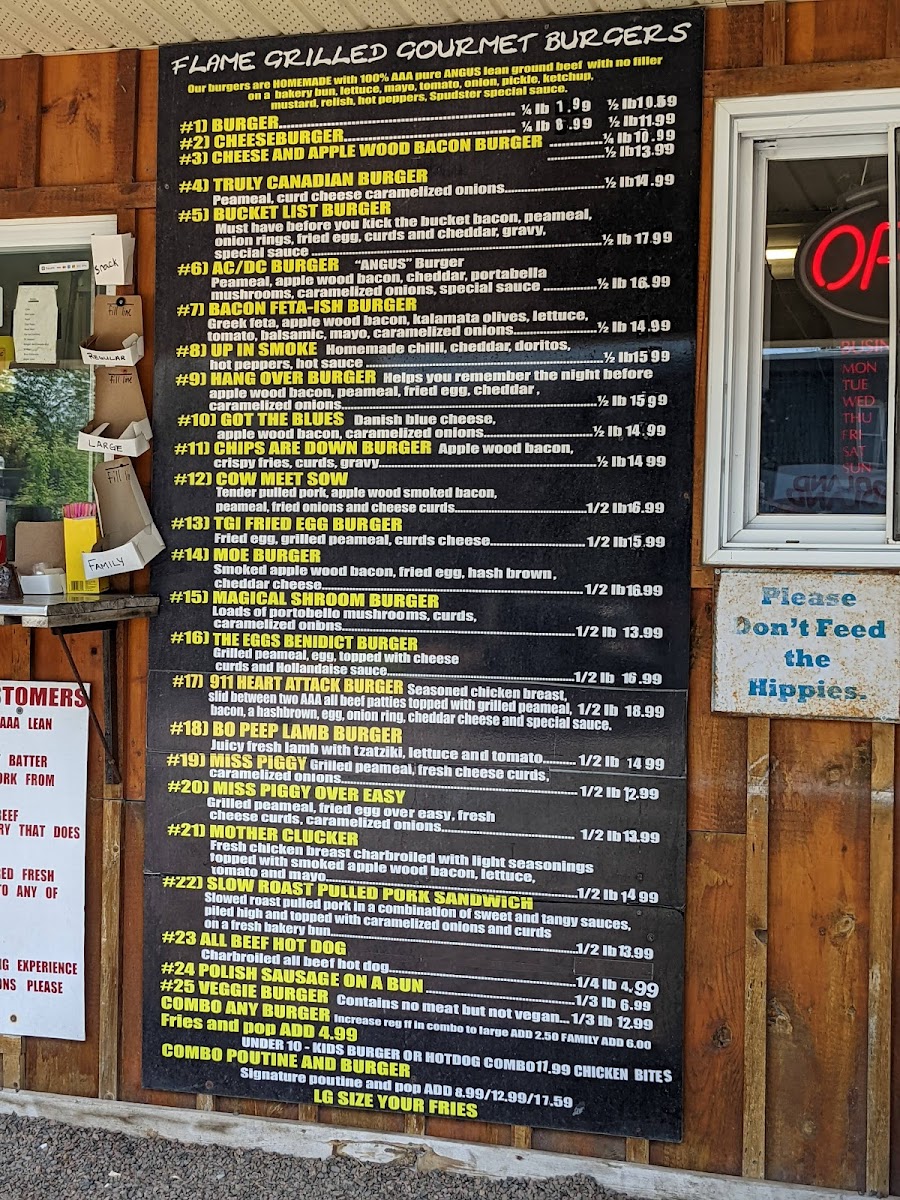 FLAME GRILLED GOURMET BURGERS
Our burgers are HOMEMADE with 100% AAA pure ANGUS lean ground beef with no filler
on a bakery bun, lettuce, mayo, tomato, onion, pickle, ketchup,
mustard, relish, hot peppers, Spudster special sauce.
#1) BURGER ¼ lb ½ lb10.59
#2) CHEESEBURGER ¼ lb 8.99 ½ lb11.99
#3) CHEESE AND APPLE WOOD BACON BURGER ¼ lb 10.99
½ lb13.99
#4) TRULY CANADIAN BURGER
Peameal, curd cheese caramelized onions ½ lb14.99
#5) BUCKET LIST BURGER
Must have before you kick the bucket bacon, peameal,
onion rings, fried egg, curds and cheddar, gravy,
special sauce ½ lb 17.99
#6) AC/DC BURGER "ANGUS" Burger
Peameal, apple wood bacon, cheddar, portabella
mushrooms, caramelized onions, special sauce ½ lb 16.99
#7) BACON FETA-ISH BURGER
Greek feta, apple wood bacon, kalamata olives, lettuce,
tomato, balsamic, mayo, caramelized onions ½ lb 14.99
#8) UP IN SMOKE Homemade chilli, cheddar, doritos,
hot peppers, hot sauce ½ lb15 99
#9) HANG OVER BURGER Helps you remember the night before
apple wood bacon, peameal, fried egg, cheddar,
caramelized onions ½ lb 15 99
#10) GOT THE BLUES Danish blue cheese,
apple wood bacon, caramelized onions ½ lb 14.99
#11) CHIPS ARE DOWN BURGER Apple wood bacon,
crispy fries, curds, gravy ½ lb14 99
#12) COW MEET SOW
Tender pulled pork, apple wood smoked bacon,
peameal, fried onions and cheese curds 1/2 lb16.99
#13) TGI FRIED EGG BURGER
Fried egg, grilled peameal, curds cheese 1/2 lb15.99
#14) MOE BURGER
Smoked apple wood bacon, fried egg, hash brown,
cheddar cheese 1/2 lb16.99
#15) MAGICAL SHROOM BURGER
Loads of portobello mushrooms, curds,
caramelized onions 1/2 lb 13.99
#16) THE EGGS BENIDICT BURGER
Grilled peameal, egg, topped with cheese
curds and Hollandaise sauce 1/2 lb 16.99
#17) 911 HEART ATTACK BURGER Seasoned chicken breast,
slid between two AAA all beef patties topped with grilled peameal, 1/2 lb 18.99
bacon, a hashbrown, egg, onion ring, cheddar cheese and special sauce.
#18) BO PEEP LAMB BURGER
Juicy fresh lamb with tzatziki, lettuce and tomato 1/2 lb 14 99
#19) MISS PIGGY Grilled peameal, fresh cheese curds,
caramelized onions 1/2 lb 12.99
#20) MISS PIGGY OVER EASY
Grilled peameal, fried egg over easy, fresh
cheese curds, caramelized onions 1/2 lb13.99
#21) MOTHER CLUCKER
Fresh chicken breast charbroiled with light seasonings
topped with smoked apple wood bacon, lettuce,
tomato and mayo 1/2 lb 14 99
#22) SLOW ROAST PULLED PORK SANDWICH
Slowed roast pulled pork in a combination of sweet and tangy sauces,
piled high and topped with caramelized onions and curds
on a fresh bakery bun 1/2 lb13.99
#23 ALL BEEF HOT DOG
Charbroiled all beef hot dog 1/4 lb 4.99
#24 POLISH SAUSAGE ON A BUN 1/3 lb 6.99
#25 VEGGIE BURGER Contains no meat but not vegan... 1/3 lb 12.99
COMBO ANY BURGER Increase reg ff in combo to large ADD 2.50 FAMILY ADD 6.00
Fries and pop ADD 4.99
UNDER 10 - KIDS BURGER OR HOTDOG COMBO11.99 CHICKEN BITES
COMBO POUTINE AND BURGER
Signature poutine and pop ADD 8.99/12.99/17.59
LG SIZE YOUR FRIES
Snack
Fill line
REGULAR
Fill line
LARGE
Fill
FAMILY
STOMERS
AAA LEAN
BATTER
ORK FROM
BEEF
RY THAT DOES
RED FRESH
TO ANY OF
NG EXPERIENCE
ONS PLEASE
BUSIN
MON
TUE
WED
THU
FRI
SAT
SUN
Please
Don't Feed
the
Hippies.